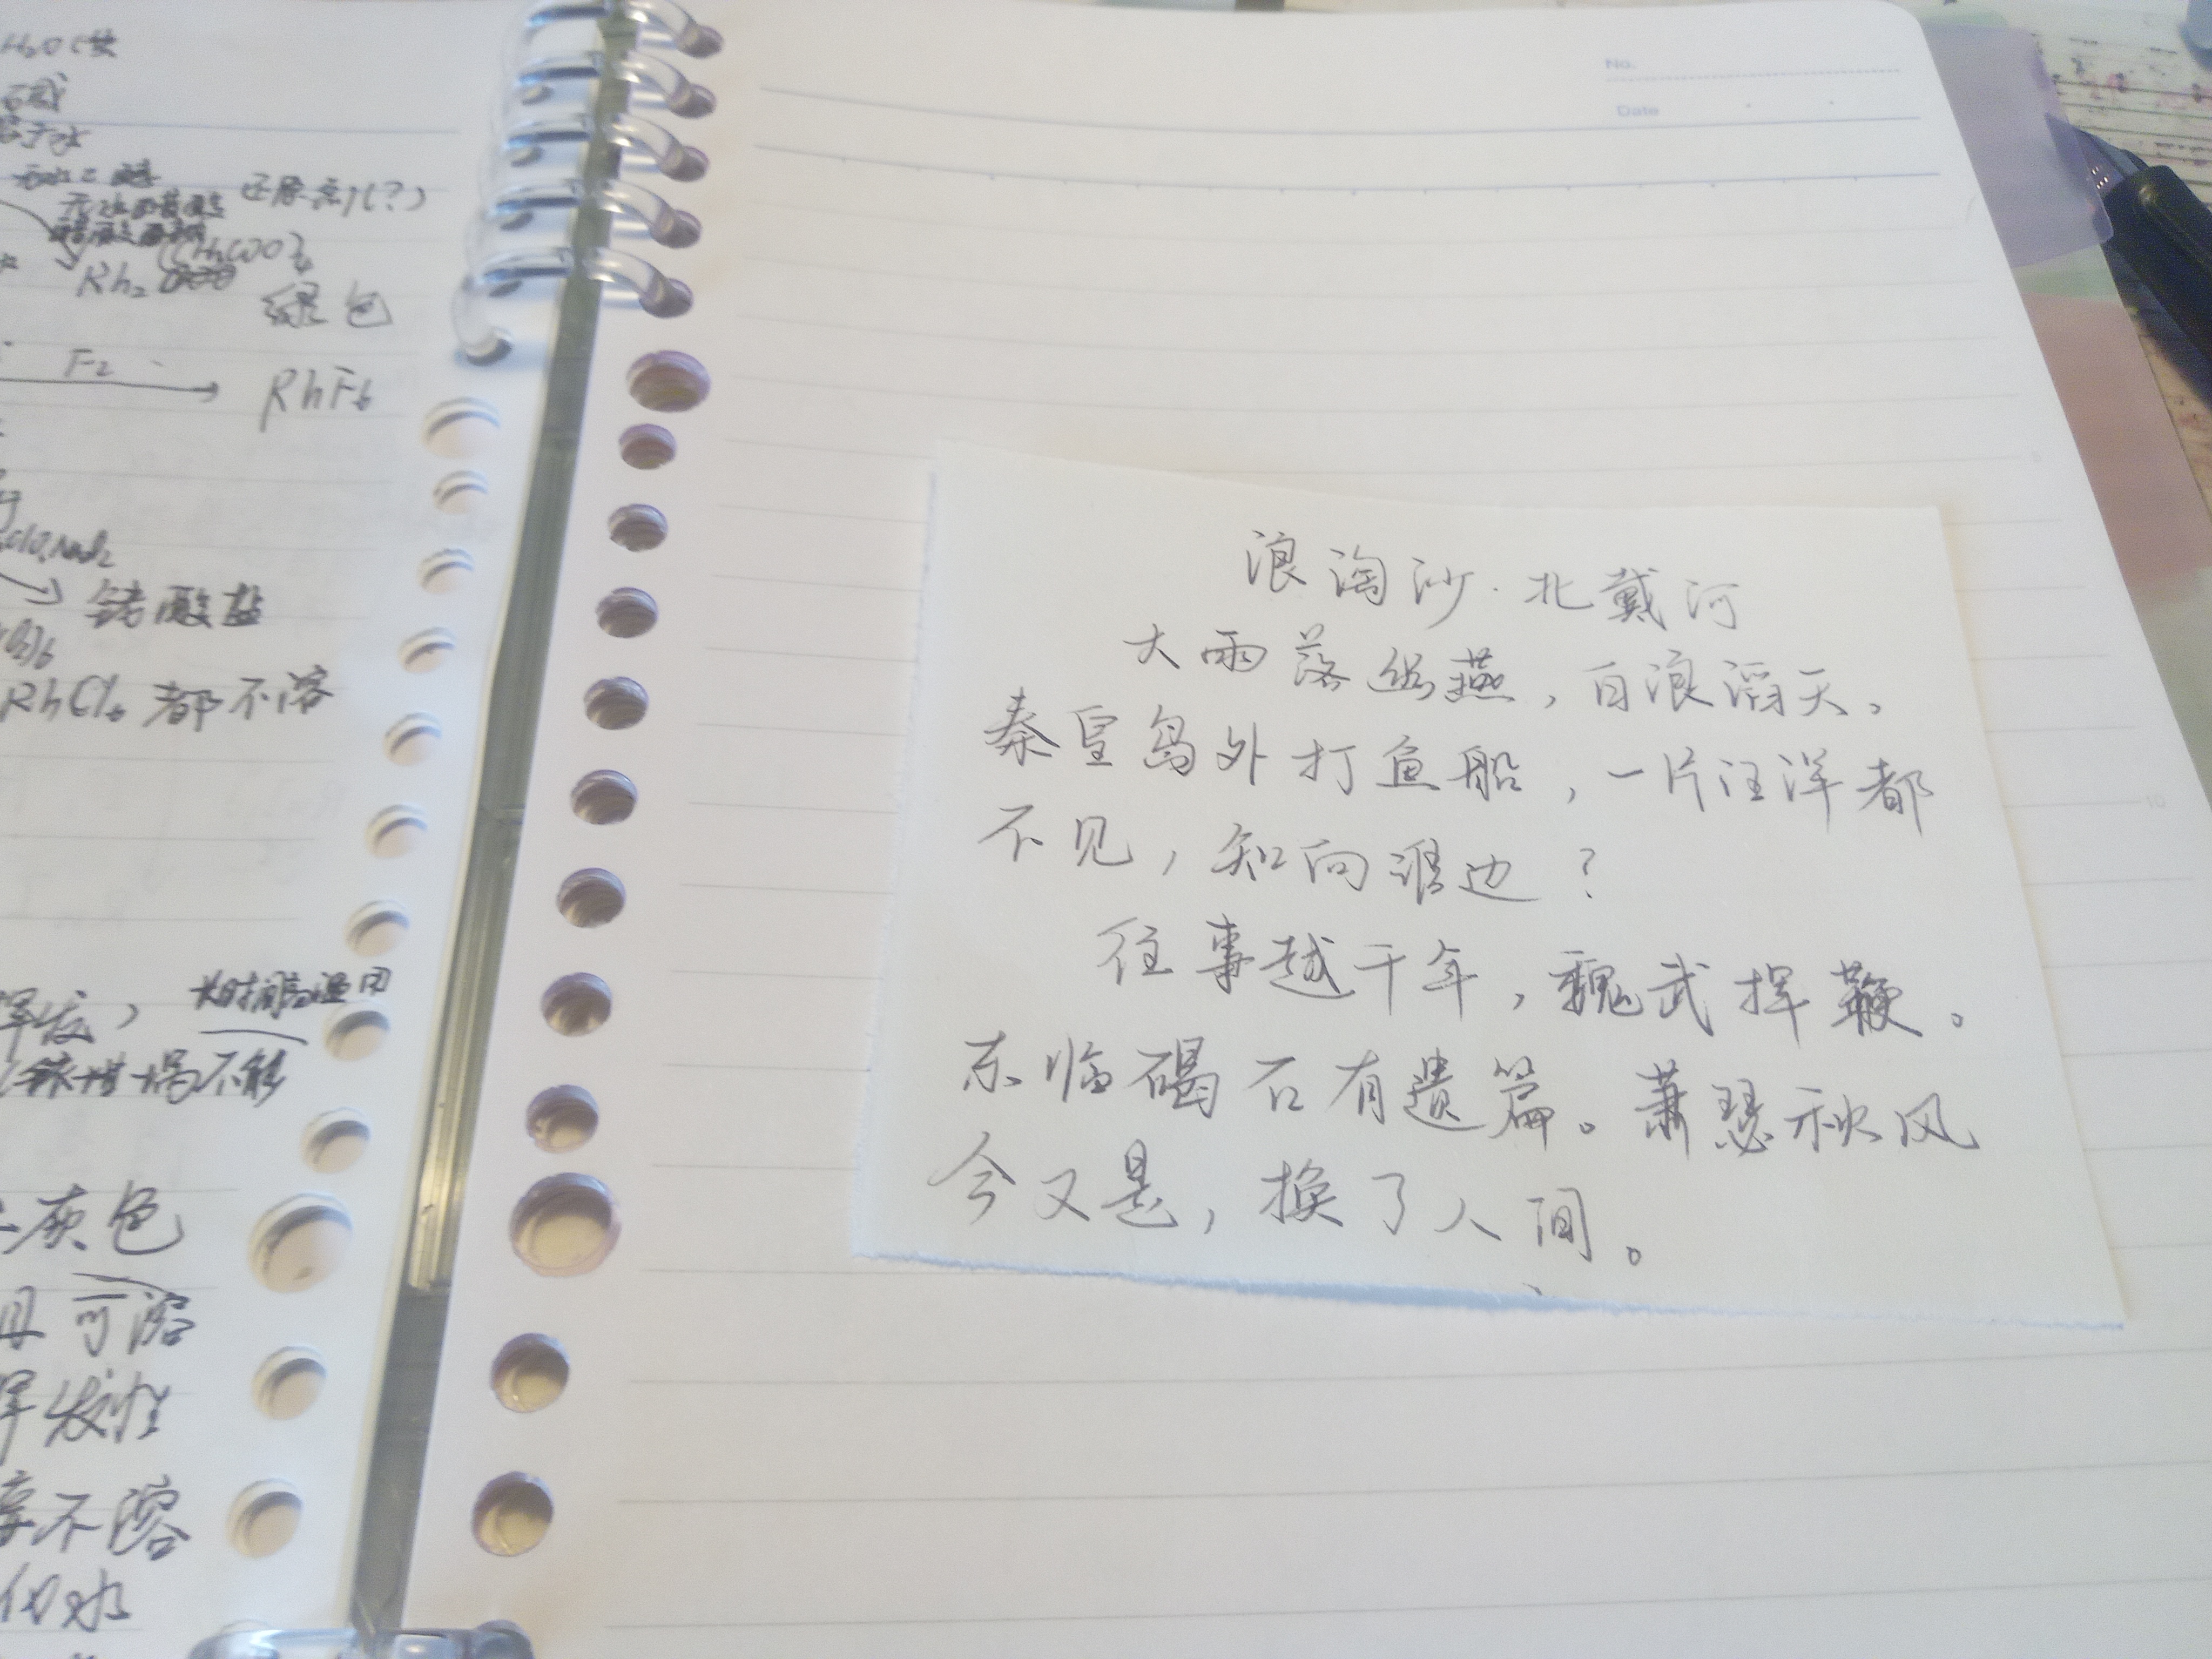 H₂O
还原剂(?)
(CH₃COO)₄
Rh₂
绿色
F₂
RhF₆
铑酸盐
RhCl₆ 都不溶
挥发,
长时间高温用
坩埚不能
灰色
可溶
挥发性
不溶
水
No.
Date
浪淘沙·北戴河
大雨落幽燕,白浪滔天。
秦皇岛外打鱼船,一片汪洋都
不见,知向谁边?
往事越千年,魏武挥鞭。
东临碣石有遗篇。萧瑟秋风
今又是,换了人间。